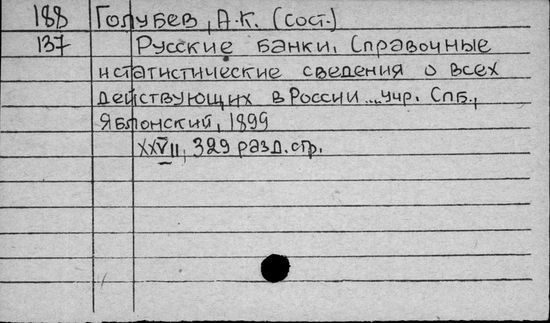 188 Голубев, А.К. (сост.)
137 Русские банки. Справочные
и статистические сведения о всех
действующих в России ... учр. Спб.,
Яблонский, 1899
XXVII, 329 разд. стр.